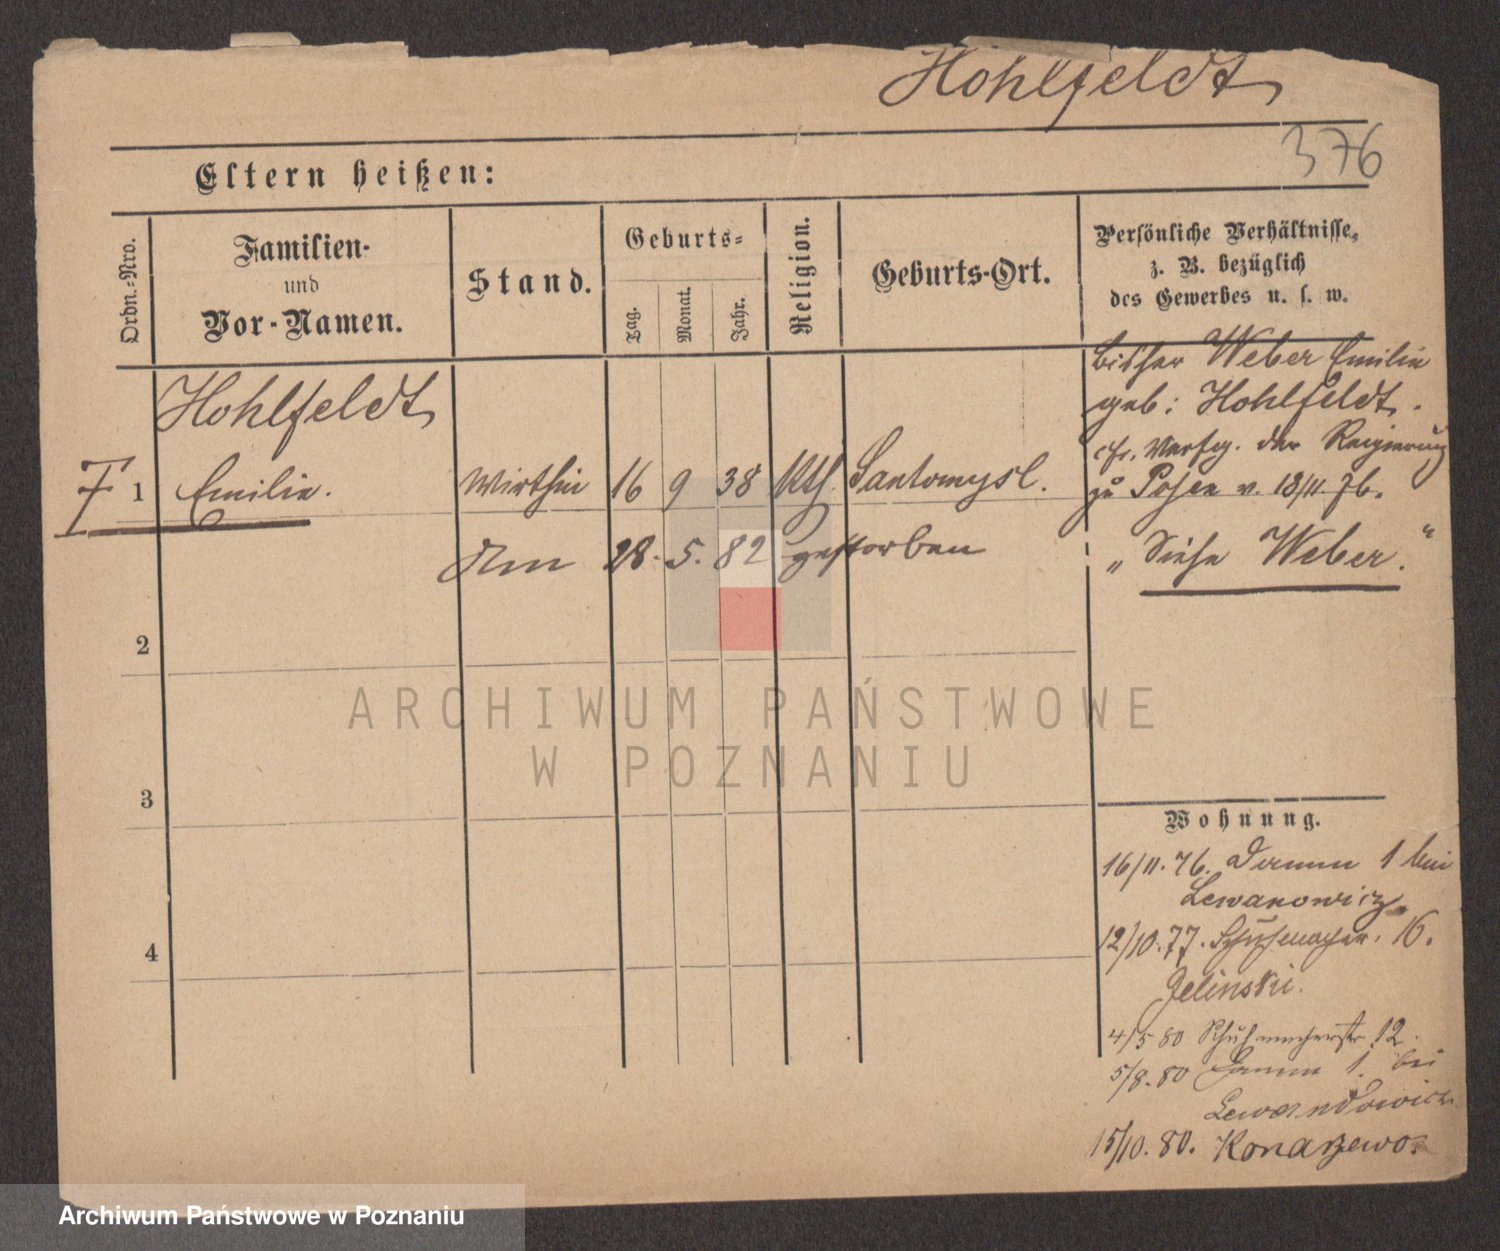 Hohlfeldt
376
Eltern heißen:
Ordn.-Nro.
Familien-
und
Vor-Namen.
Stand.
Geburts-
Tag.
Monat.
Jahr.
Religion.
Geburts-Ort.
Persönliche Verhältnisse,
z. B. bezüglich
des Gewerbes u. s. w.
Hohlfeldt
1 Emilie. Wirthin 16 9 38 kth. Santomysl.
Am 28. 5. 82 gestorben
bisher Weber Emilie
geb: Hohlfeldt.
cfr. Verfg. der Regierung
zu Posen v. 18/11. 76.
„Siehe Weber."
2
3
4
ARCHIWUM PAŃSTWOWE
W POZNANIU
Wohnung.
16/11. 76. Damm 1 bei
Lewanowicz.
12/10. 77. Schuhmacher. 16.
Jelinski.
4/5 80 Schuhmacherstr 12.
5/8. 80 Damm 1. bei
Lewandowicz
15/10. 80. Konarzewo.
Archiwum Państwowe w Poznaniu